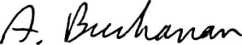 A. Buchanan